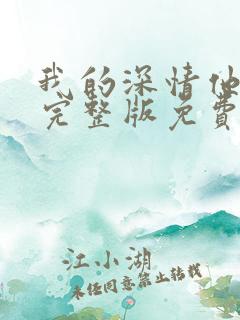 我的深情他
完整版免费
江小湖
未经同意禁止转载